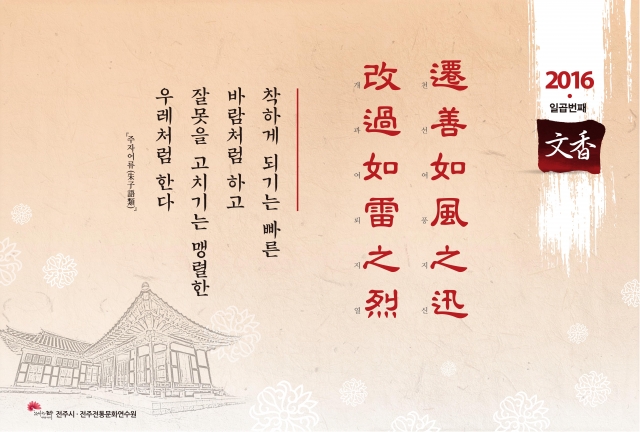 2016
일곱번째
文香
遷善如風之迅
천선여풍지신
改過如雷之烈
개과여뢰지열
착하게 되기는 빠른
바람처럼 하고
잘못을 고치기는 맹렬한
우레처럼 한다
『주자어류(朱子語類)』
전주시·전주전통문화연수원